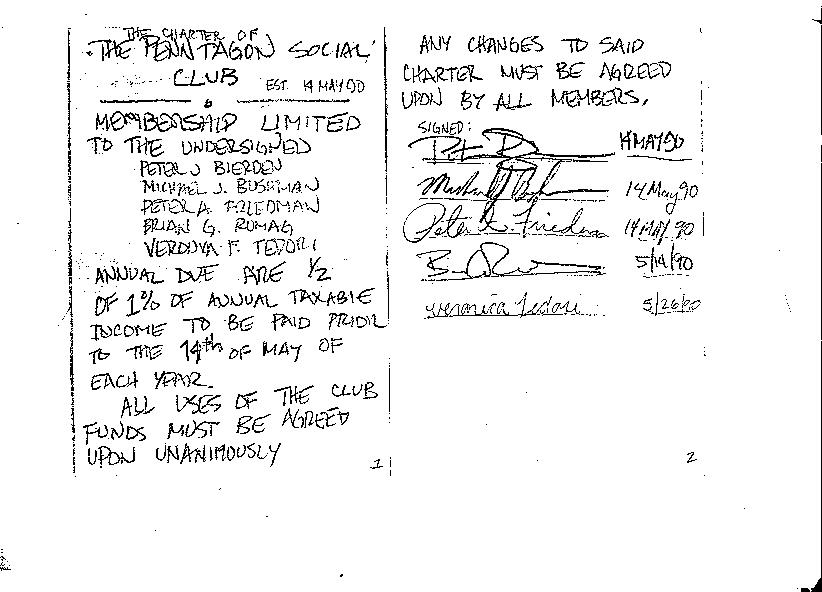 THE CHARTER OF
THE PENNTAGON SOCIAL
CLUB EST. 14 MAY 90
MEMBERSHIP LIMITED
TO THE UNDERSIGNED
PETER J BIERDEN
MICHAEL J. BUSHMAN
PETER A. FRIEDMAN
BRIAN G. ROMAG
F. TEDORI
ANNUAL DUE ARE 1/2
OF 1% OF ANNUAL TAXABLE
INCOME TO BE PAID PRIOR
TO THE 14th OF MAY OF
EACH YEAR.
ALL USES OF THE CLUB
FUNDS MUST BE AGREED
UPON UNANIMOUSLY
1
ANY CHANGES TO SAID
CHARTER MUST BE AGREED
UPON BY ALL MEMBERS.
SIGNED:
14 MAY 90
14 May 90
Peter A. Friedman 14 MAY 90
5/14/90
Veronica Tedori 5/26/90
2